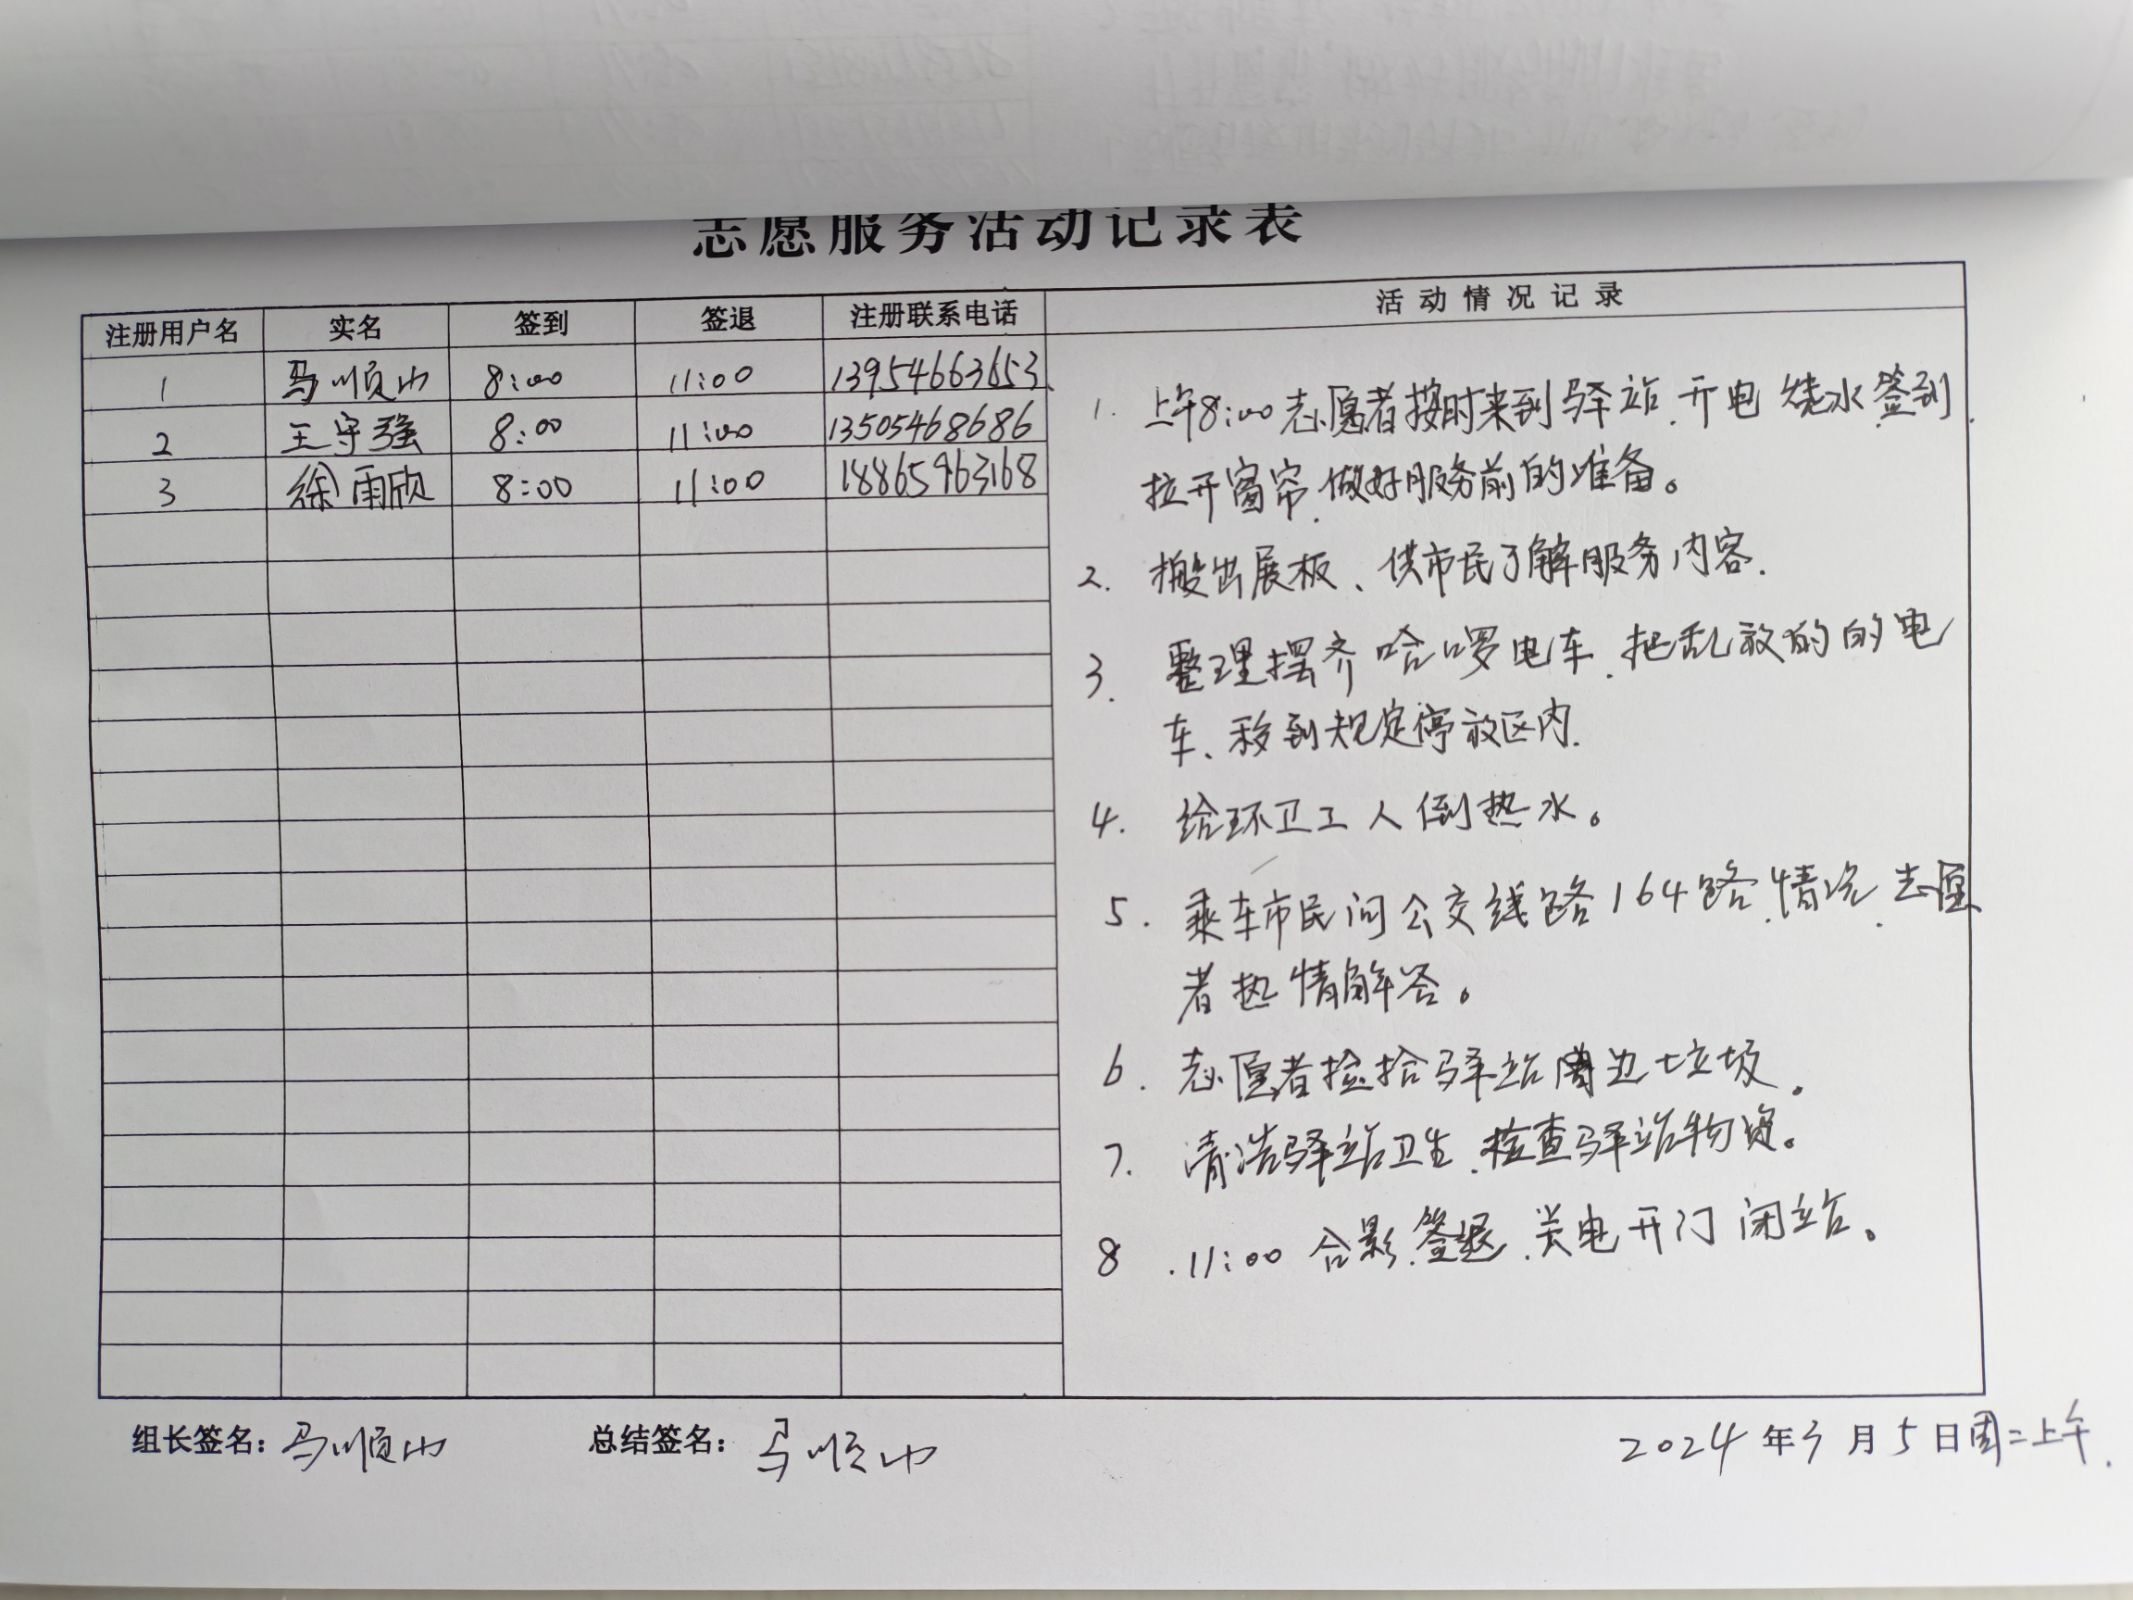 志愿服务活动记录表
注册用户名 实名 签到 签退 注册联系电话 活动情况记录
1 马顺山 8:00 11:00 13954663653
2 王守强 8:00 11:00 13505468686
3 徐雨欣 8:00 11:00 18865463168
1. 上午8:00志愿者按时来到驿站.开电 烧水.签到.
拉开窗帘.做好服务前的准备。
2. 搬出展板、供市民了解服务内容.
3. 整理摆齐哈啰电车.把乱放的的电
车、移到规定停放区内.
4. 给环卫工人倒热水。
5. 乘车市民问公交线路164路.情况.志愿
者热情解答。
6. 志愿者捡拾驿站周边垃圾。
7. 清洁驿站卫生.检查驿站物资。
8 .11:00 合影.签退.关电开门闭站。
组长签名：马顺山 总结签名：马顺山 2024年3月5日周二上午.